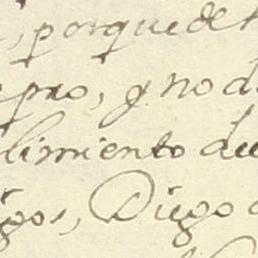 , porque de
pro, y no d
limiento du
igos, Diego